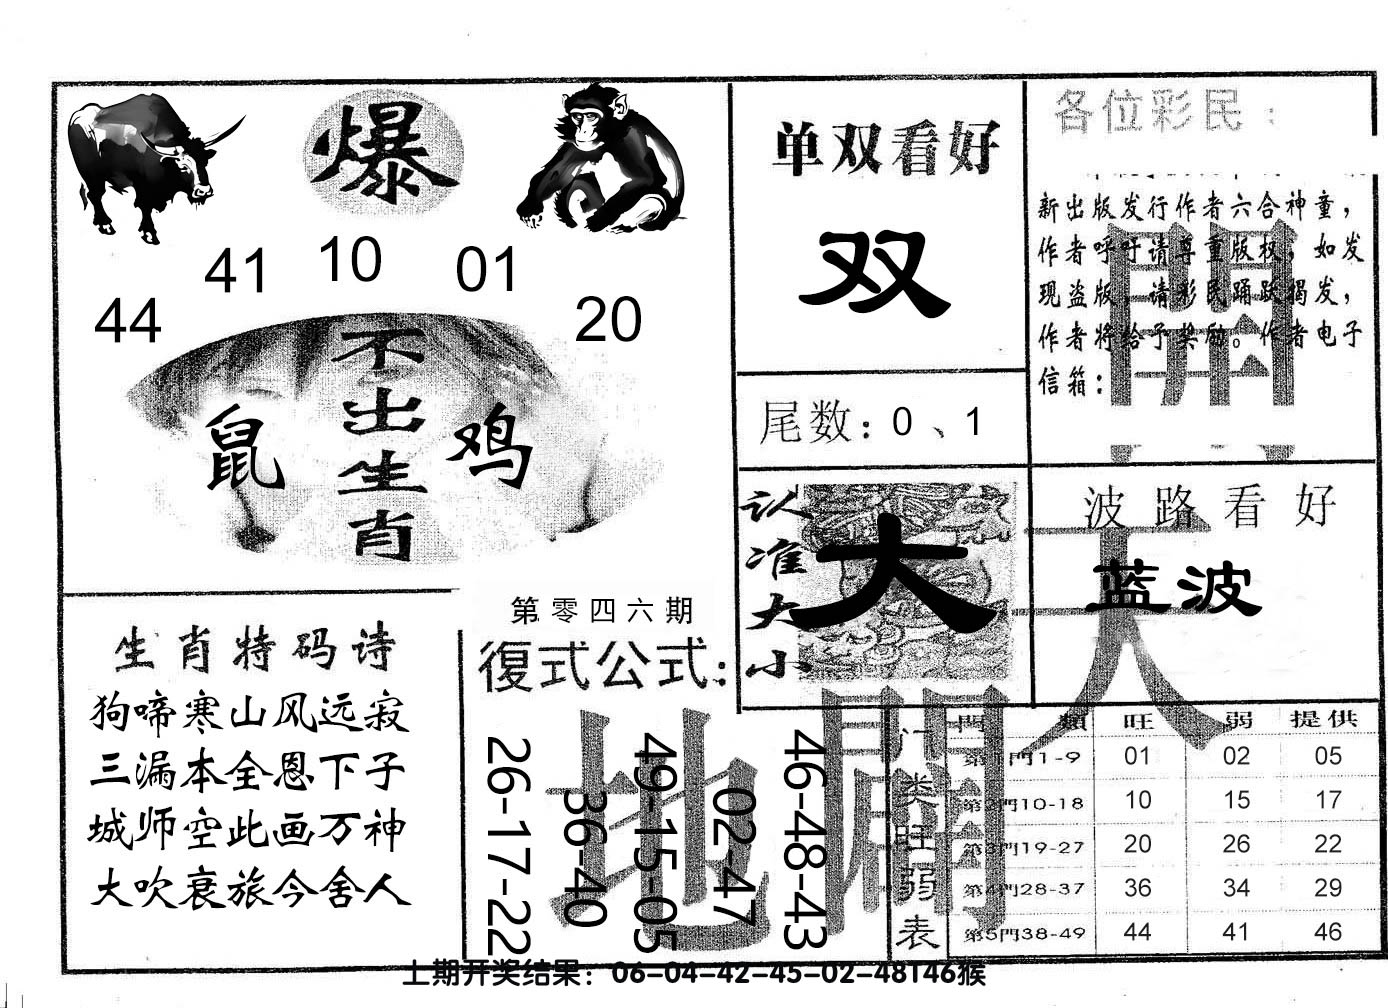 爆
41 10 01
44 20
不出生肖
鼠 鸡
单双看好
双
尾数：0、1
各位彩民：
新出版发行作者六合神童，
作者呼吁请尊重版权，如发
现盗版，请彩民踊跃揭发，
作者将给予奖励。作者电子
信箱：
開
认准大小
大
波路看好
蓝波
天
生肖特码诗
狗啼寒山风远寂
三漏本全恩下子
城师空此画万神
大吹衰旅今舍人
第零四六期
復式公式：
26-17-22
36-40
49-15-05
02-47
46-48-43
地
門类旺弱表
門 類 旺 弱 提供
第1門1-9 01 02 05
第2門10-18 10 15 17
第3門19-27 20 26 22
第4門28-37 36 34 29
第5門38-49 44 41 46
上期开奖结果：06-04-42-45-02-48T46猴